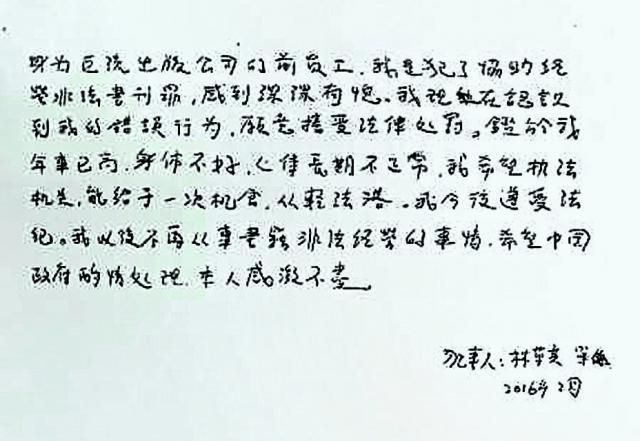 身为巨流出版公司的前员工,我是犯了协助经
营非法书刊罪,感到深深有愧。我现在认识
到我的错误行为,愿意接受法律处罚。鉴于我
年事已高,身体不好,心律长期不正常,我希望执法
机关,能给于一次机会,从轻法落。我今后遵受法
纪。我以后不再从事书籍非法经营的事情,希望中国
政府酌情处理,本人感激不尽。
犯事人:林荣
2016年 2月